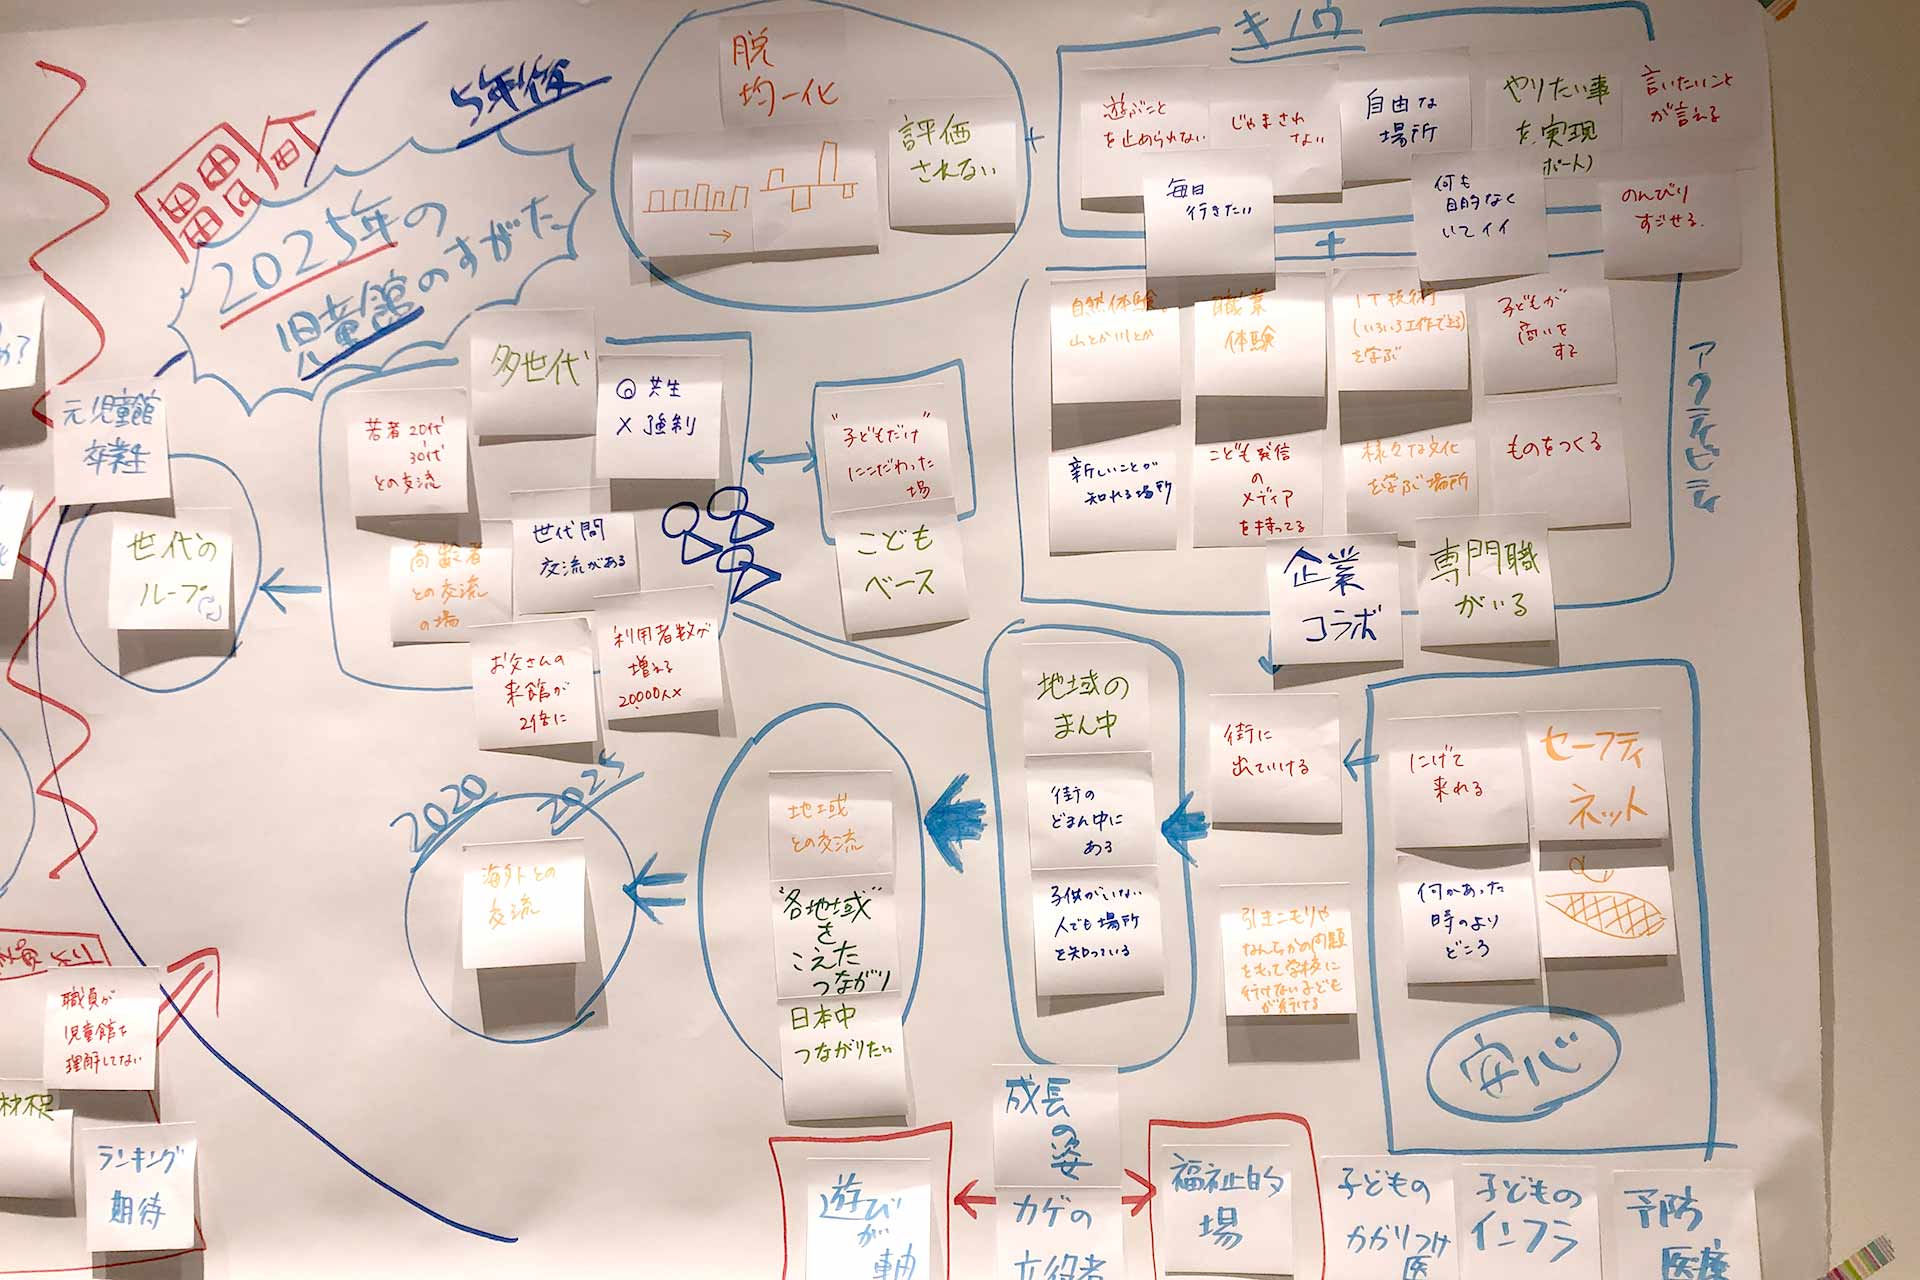 5年後
2025年の
児童館のすがた
脱
均一化
評価
されない
キノウ
遊ぶこと
を止められない
じゃまされ
ない
自由な
場所
やりたい事
を実現
ポート)
言いたいこと
が言える
毎日
行きたい
何も
目的なく
いてイイ
のんびり
すごせる.
アクティビティ
自然体験
山とか川とか
職業
体験
IT技術
(いろいろ工作できる)
を学ぶ
子どもが
商いを
する
新しいことが
知れる場所
こども発信
の
メディア
を持ってる
様々な文化
を学ぶ場所
ものをつくる
企業
コラボ
専門職
がいる
多世代
◎共生
×強制
若者20代
30代
との交流
世代間
交流がある
高齢者
との交流
の場
お父さんの
来館が
2倍に
利用者数が
増える
20,000人×
"子どもだけ"
にこだわった
場
こども
ベース
元児童館
卒業生
世代の
ループ
地域の
まん中
街の
どまん中に
ある
子供がいない
人でも場所
を知っている
街に
出ていける
にげて
来れる
セーフティ
ネット
何かあった
時のより
どころ
安心
引きこモリや
なんらかの問題
をもって学校に
行けない子ども
が行ける
地域
との交流
"各地域"
を
こえた
つながり
日本中
つながりたい
2020
2025
海外との
交流
職員が
児童館を
理解してない
ランキング
期待
成長
の
姿
カゲの
立役者
遊び
が
軸
福祉的
場
子どもの
かかりつけ
医
子どもの
インフラ
予防
医療